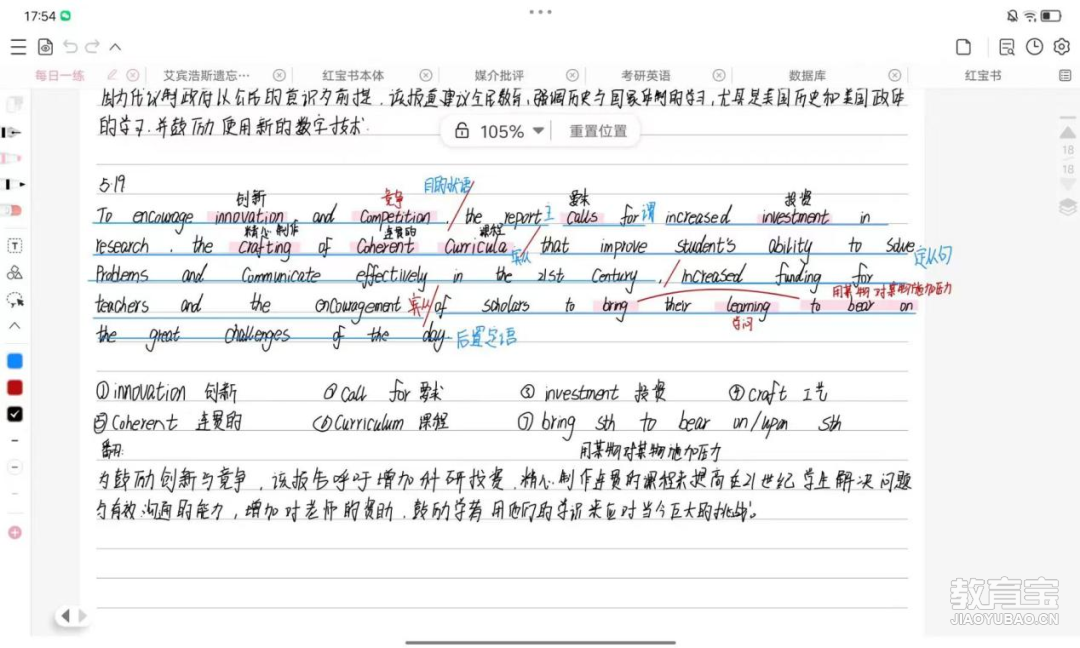 17:54
每日一练 艾宾浩斯遗忘··· 红宝书本体 媒介批评 考研英语 数据库 红宝书
因为代议制政府以公民的意识为前提，该报道建议全民教育，强调历史与国家体制的学习，尤其是美国历史和美国政体
的学习.并鼓励使用新的数字技术.
105% 重置位置
18
18
5.19
创新 竞争 目的状语 要求 投资
To encourage innovation and competition, the report 主 calls for 谓 increased investment in
精心制作 连贯的 课程
research, the crafting of Coherent Curricula 宾从 that improve student's ability to solve 定从句
Problems and Communicate effectively in the 21st Century, increased funding for
用某物对某物施加压力
teachers and the encouragement of scholars to bring their learning to bear on
学问
the great challenges of the day. 后置定语
①innovation 创新 ②Call for 要求 ③ investment 投资 ④craft 工艺
⑤Coherent 连贯的 ⑥Curriculum 课程 ⑦ bring sth to bear on/upon sth
翻: 用某物对某物施加压力
为鼓励创新与竞争，该报告呼吁增加科研投资，精心制作连贯的课程来提高在21世纪学生解决问题
与有效沟通的能力，增加对老师的资助，鼓励学者用他们的学识来应对当今巨大的挑战。
教育宝
JIAOYUBAO.CN